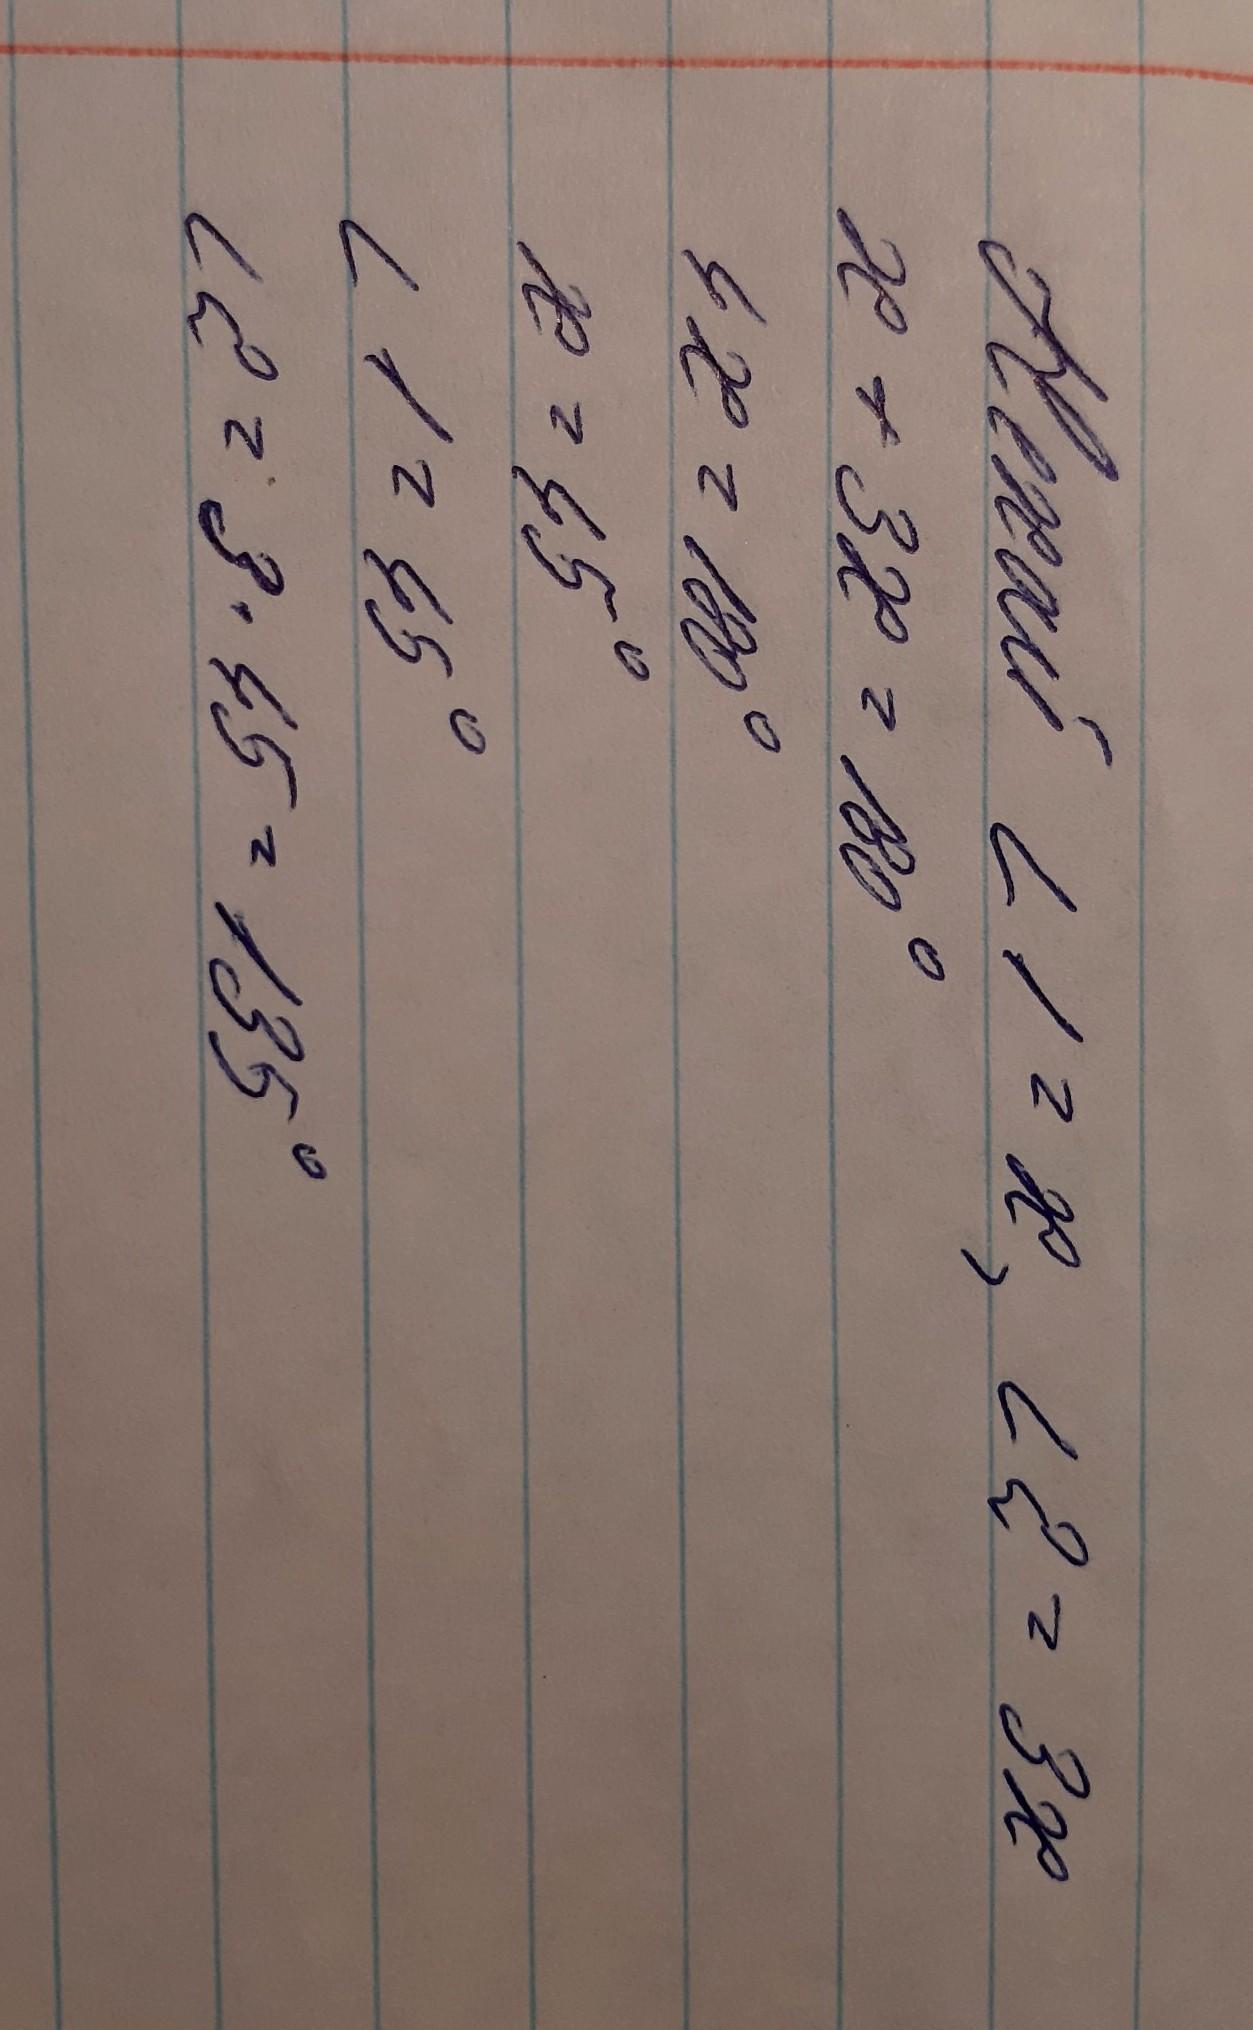 Нехай ∠1 = x, ∠2 = 3x
x + 3x = 180°
4x = 180°
x = 45°
∠1 = 45°
∠2 = 3·45 = 135°